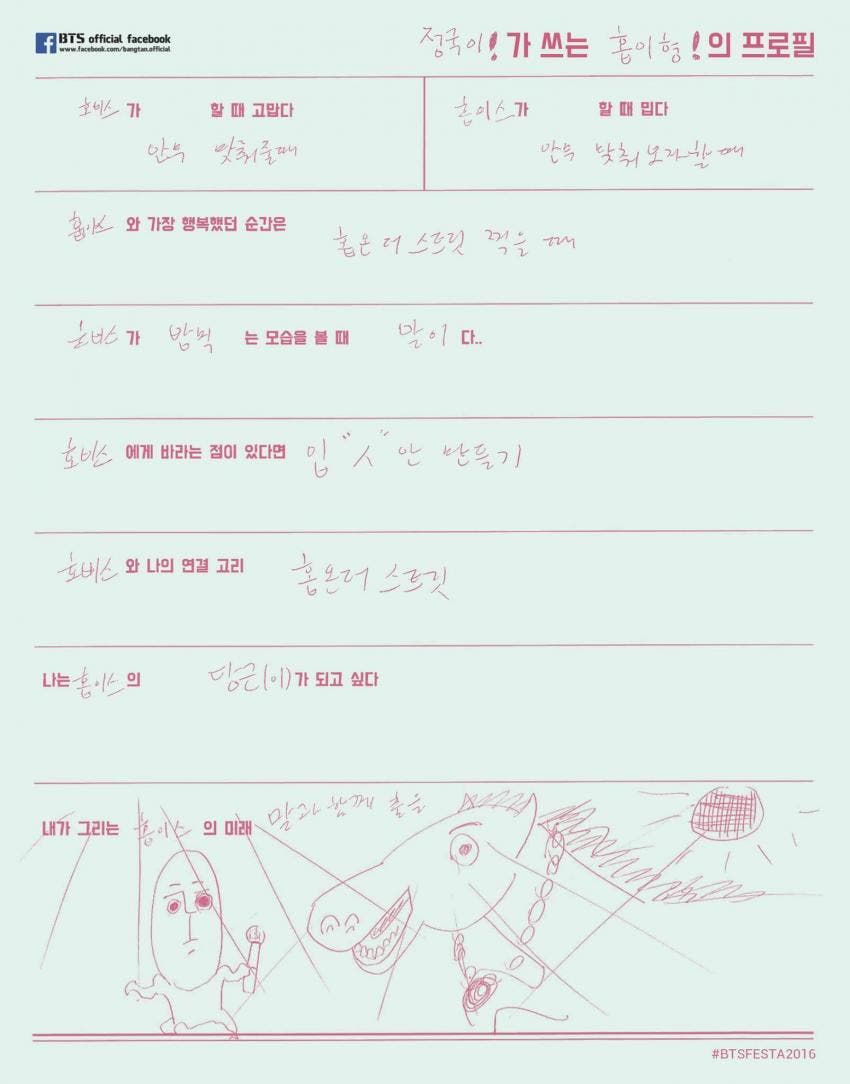 BTS official facebook
www.facebook.com/bangtan.official
정국이!가 쓰는 홉이형!의 프로필
호비스가 할 때 고맙다
안무 맞춰줄때
홉이스가 할 때 밉다
안무 맞춰보자할 때
홉이스와 가장 행복했던 순간은 홉온더 스트릿 찍을 때
호비스가 밥먹는 모습을 볼 때 말이다..
호비스에게 바라는 점이 있다면 입 "ㅅ" 안 만들기
호비스와 나의 연결 고리 홉온더 스트릿
나는 홉이스의 당근(이)가 되고 싶다
내가 그리는 홉이스의 미래 말과 함께 춤을
#BTSFESTA2016